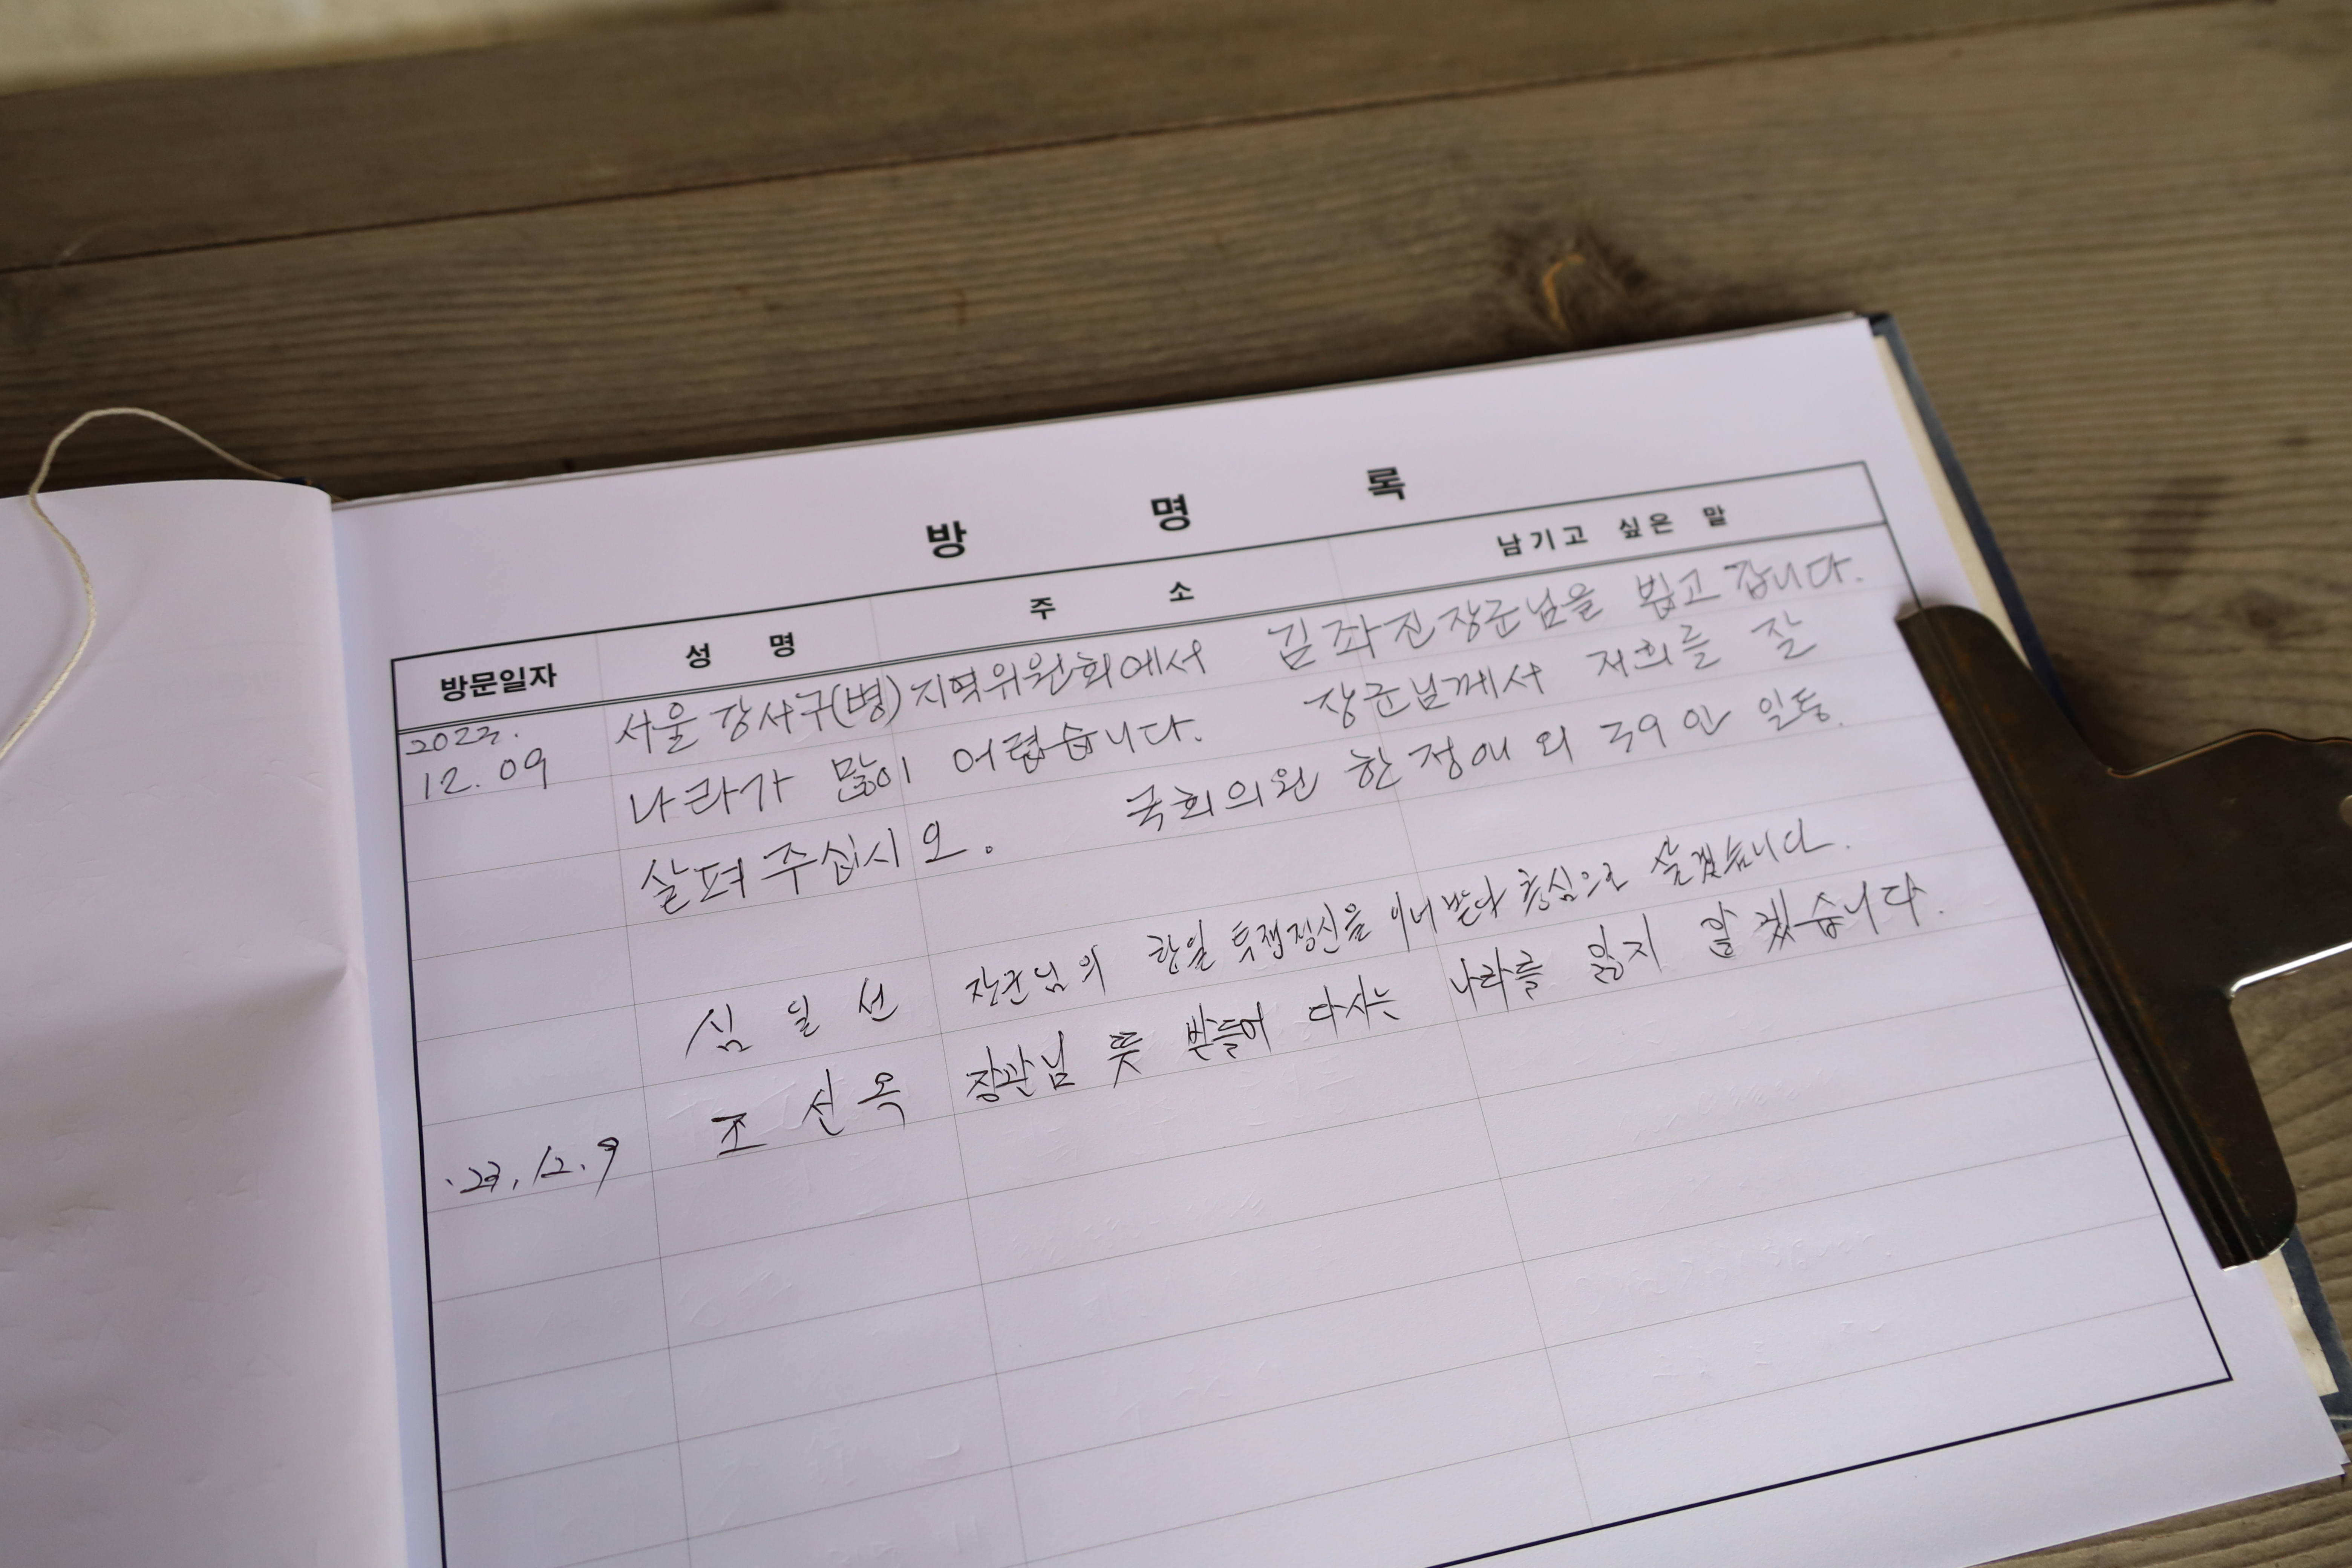 방 명 록
방문일자 성 명 주 소 남기고 싶은 말
서울 강서구(병) 지역위원회에서 김좌진장군님을 뵙고 갑니다.
12.09 나라가 많이 어렵습니다. 장군님께서 저희를 잘
살펴 주십시오. 국회의원 한정애 외 39인 일동.
심일선 장군님의 항일 투쟁정신을 이어받다 충심으로 살겠습니다.
23.12.9 조선옥 장관님 뜻 받들어 다시는 나라를 잃지 않겠습니다.